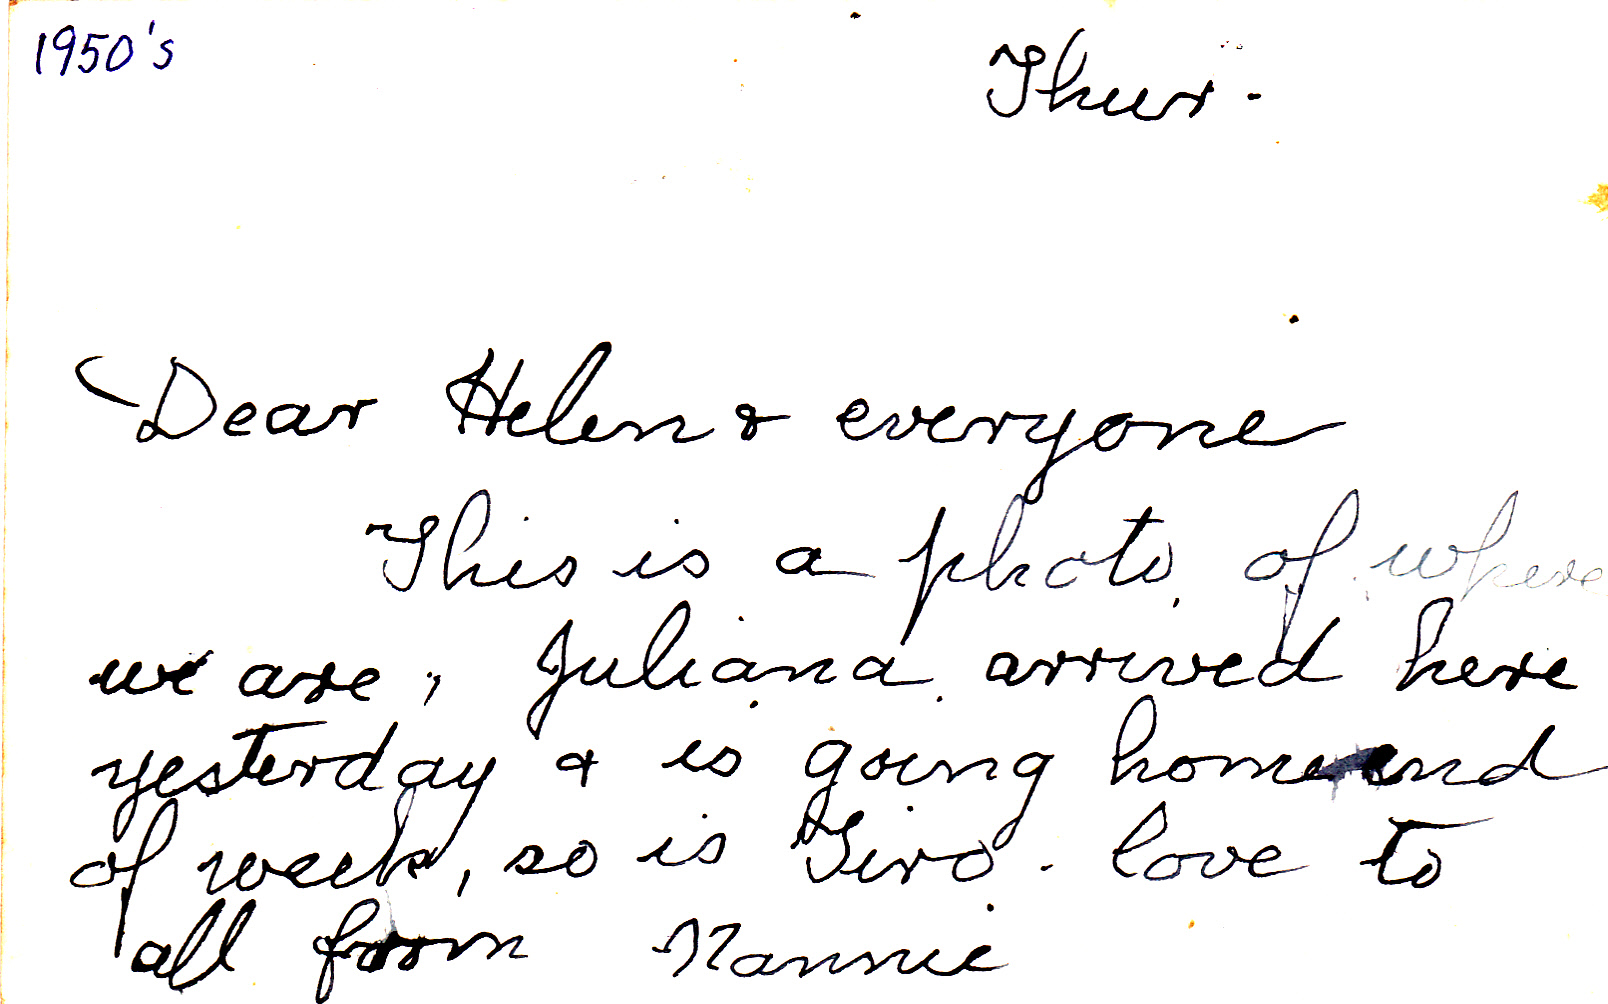 1950's
Thur.
Dear Helen & everyone
This is a photo of where
we are, Juliana arrived here
yesterday & is going home end
of week, so is Giro. love to
all from Nannie